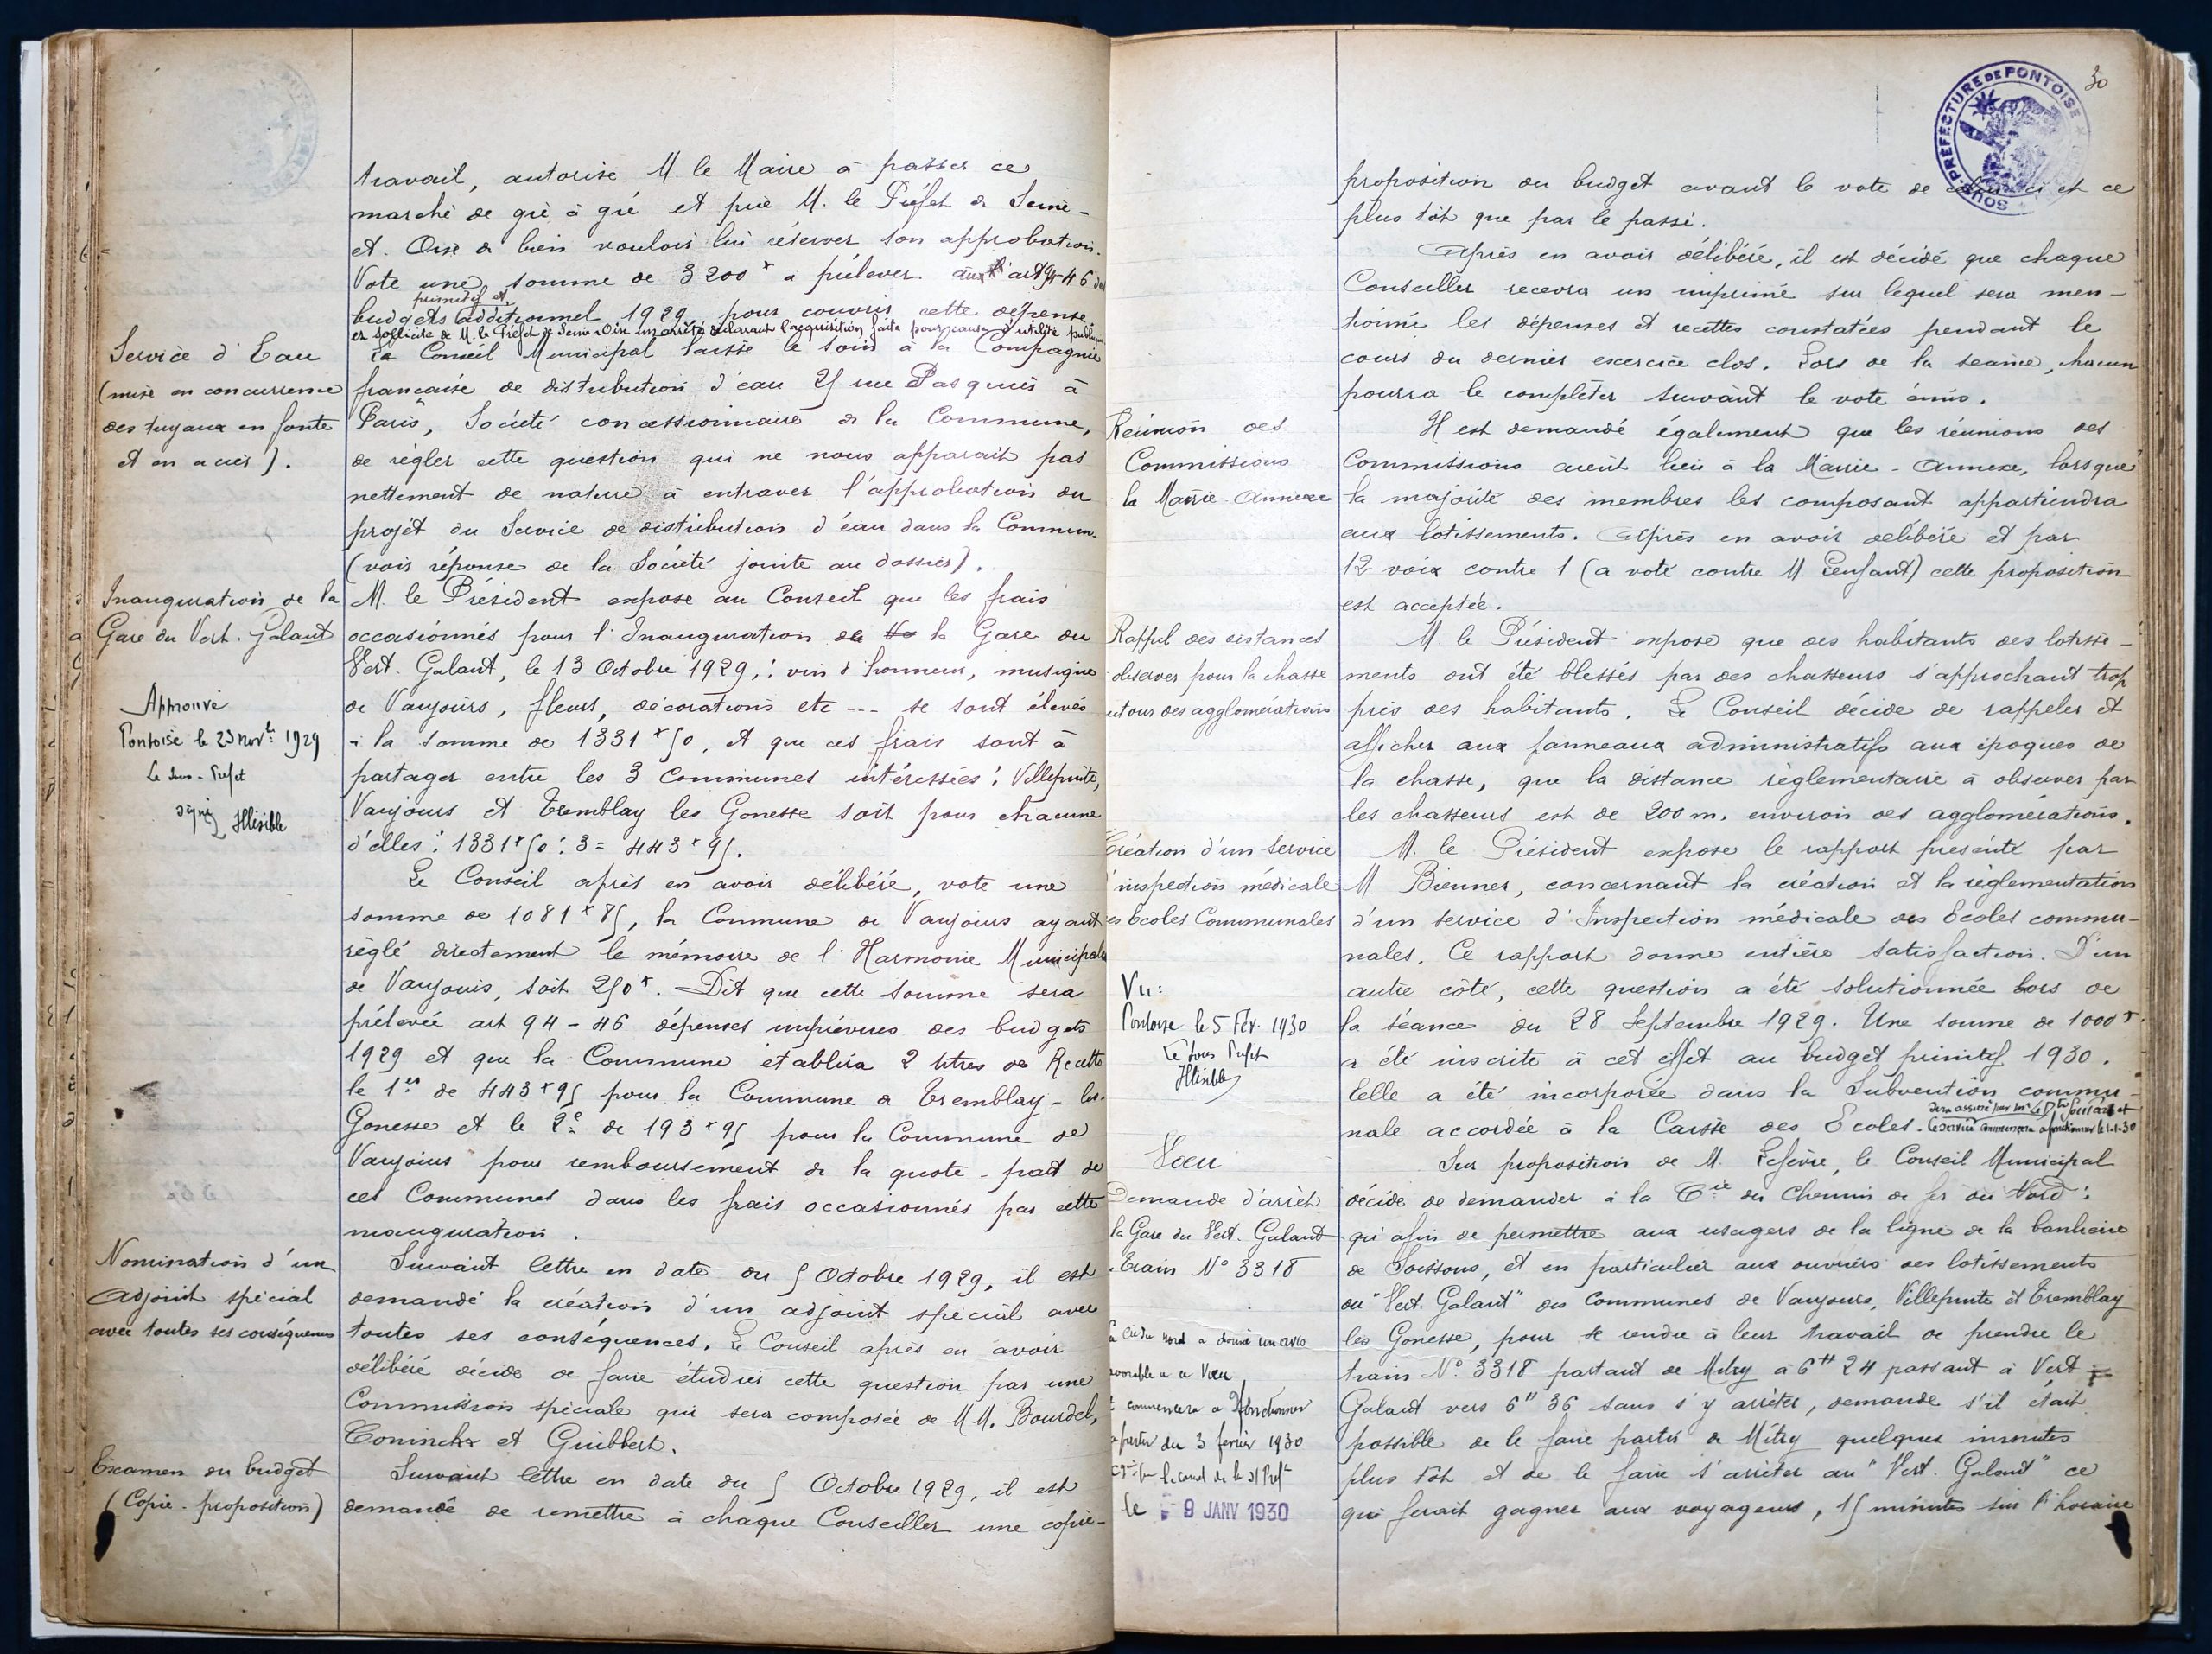 travail, autorise M. le Maire à passer ce
marché de gré à gré et prie M. le Préfet de Seine-
et-Oise de bien vouloir lui réserver son approbation.
Vote une somme de 3200 f à prélever aux art 94-46 des
primitif et
budgets additionnel 1929 pour couvrir cette dépense
et sollicite de M. le Préfet de Seine & Oise un arrêté déclarant l'acquisition faite pour cause d'utilité publique
Service d'Eau
(mise en concurrence
des tuyaux en fonte
et en acier).
Le Conseil Municipal laisse le soin à la Compagnie
française de distribution d'eau 25 rue Pasquier à
Paris, Société concessionnaire de la Commune,
de régler cette question qui ne nous apparait pas
nettement de nature à entraver l'approbation du
projet du Service de distribution d'eau dans la Commune
(voir réponse de la Société jointe au dossier).
Inauguration de la
Gare du Vert-Galant
Approuvé
Pontoise le 23 Novbre 1929
Le Sous-Préfet
signé Illisible
M. le Président expose au Conseil que les frais
occasionnés pour l'Inauguration de la Gare du
Vert-Galant, le 13 Octobre 1929,: vin d'honneur, musique
de Vaujours, fleurs, décorations etc --- se sont élevés
à la somme de 1331 f 50, et que ces frais sont à
partager entre les 3 Communes intéressées: Villepinte,
Vaujours et Tremblay les Gonesse soit pour chacune
d'elles: 1331 f 50 : 3 = 443 f 95.
Le Conseil après en avoir délibéré, vote une
somme de 1081 f 85, la Commune de Vaujours ayant
réglé directement le mémoire de l'Harmonie Municipale
de Vaujours, soit 250 f. Dit que cette somme sera
prélevée art 94-46 dépenses imprévues des budgets
1929 et que la Commune établira 2 titres de Recette
le 1er de 443 f 95 pour la Commune de Tremblay-les-
Gonesse et le 2e de 193 f 95 pour la Commune de
Vaujours pour remboursement de la quote-part de
ces Communes dans les frais occasionnés par cette
inauguration.
Nomination d'un
Adjoint spécial
avec toutes ses conséquences
Suivant lettre en date du 5 Octobre 1929, il est
demandé la création d'un adjoint spécial avec
toutes ses conséquences. Le Conseil après en avoir
délibéré décide de faire étudier cette question par une
Commission spéciale qui sera composée de MM. Bourdel,
Coninckx et Guibbert.
Examen du budget
(Copie-proposition)
Suivant lettre en date du 5 Octobre 1929, il est
demandé de remettre à chaque Conseiller une copie-
30
SOUS-PRÉFECTURE DE PONTOISE
proposition du budget avant le vote de celui-ci et ce
plus tôt que par le passé.
Après en avoir délibéré, il est décidé que chaque
Conseiller recevra un imprimé sur lequel sera men-
tionné les dépenses et recettes constatées pendant le
cours du dernier exercice clos. Lors de la séance, chacun
pourra le compléter suivant le vote émis.
Réunion des
Commissions
la Mairie-Annexe
Il est demandé également que les réunions des
Commissions aient lieu à la Mairie-Annexe, lorsque
la majorité des membres les composant appartiendra
aux lotissements. Après en avoir délibéré et par
12 voix contre 1 (a voté contre M Lenfant) cette proposition
est acceptée.
Rappel des distances
observer pour la chasse
utour des agglomérations
M. le Président expose que des habitants des lotisse-
ments ont été blessés par des chasseurs s'approchant trop
près des habitants. Le Conseil décide de rappeler et
afficher aux panneaux administratifs aux époques de
la chasse, que la distance règlementaire à observer par
les chasseurs est de 200 m. environ des agglomérations.
Création d'un Service
'inspection médicale
es Ecoles Communales
Vu:
Pontoise le 5 Fév. 1930
Le Sous Préfet
Illisible
M. le Président expose le rapport présenté par
M. Bienner, concernant la création et la règlementation
d'un service d'Inspection médicale des Ecoles commu-
nales. Ce rapport donne entière satisfaction. D'un
autre côté, cette question a été solutionnée lors de
la séance du 28 Septembre 1929. Une somme de 1000 f.
a été inscrite à cet effet au budget primitif 1930.
Elle a été incorporée dans la Subvention commu-
nale accordée à la Caisse des Ecoles.
sera assuré par Mr le Dtr et
le service commencera à fonctionner le 1-1-30
Vœu
Demande d'arrêt
la Gare du Vert-Galant
train N° 3318
Cie du Nord a donné un avis
avorable à ce Vœu
commencera a fonctionner
a partir du 3 fevrier 1930
le 9 JANV 1930
Sur proposition de M. Lefèvre, le Conseil Municipal
décide de demander à la Cie du Chemin de fer du Nord:
qu'afin de permettre aux usagers de la ligne de la banlieue
de Soissons, et en particulier aux ouvriers des lotissements
du "Vert-Galant" des Communes de Vaujours, Villepinte et Tremblay
les Gonesse, pour se rendre à leur travail de prendre le
train N° 3318 partant de Mitry à 6H 24 passant à Vert-
Galant vers 6H 36 sans s'y arrêter, demande s'il était
possible de le faire partir de Mitry quelques minutes
plus tôt et de le faire s'arrêter au "Vert-Galant" ce
qui ferait gagner aux voyageurs, 15 minutes sur l'horaire